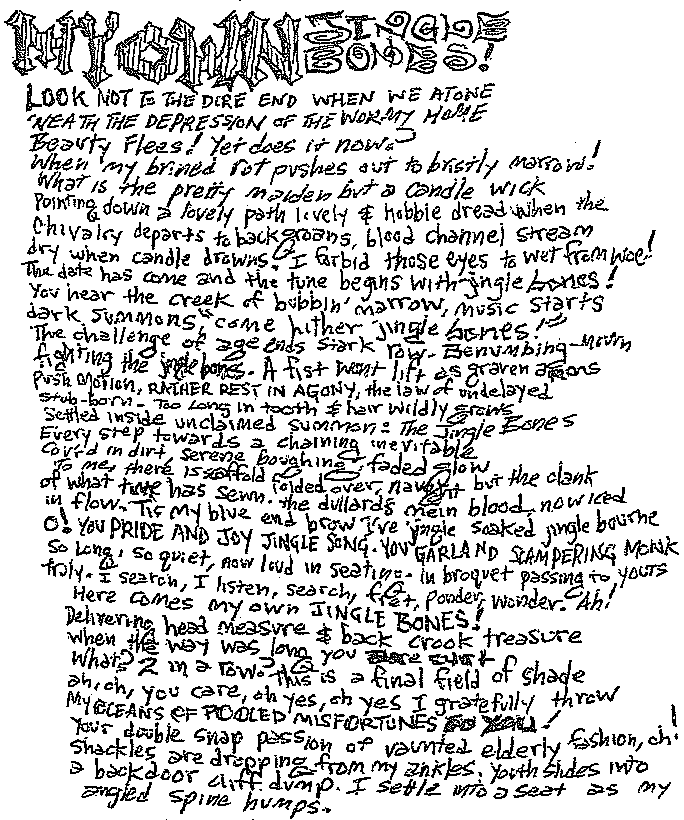 MY OWN JINGLE BONES!
LOOK NOT TO THE DIRE END WHEN WE ATONE
'NEATH THE DEPRESSION OF THE WORMY HOME
Beauty Flees! Yet does it now?
When my brined rot pushes out to bristly marrow!
What is the pretty maiden but a candle wick
Pointing down a lovely path lively & hobbie dread when the
Chivalry departs to back groans, blood channel stream
dry when candle drowns. I forbid those eyes to wet from woe!
The date has come and the tune begins with jingle bones!
You hear the creek of bubblin' marrow, music starts
dark summons, "come hither jingle bones!"
The challenge of age ends stark row. Benumbing-mourn
fighting the jingle bones. A fist won't lift as graven
Push motion, RATHER REST IN AGONY, the law of undelayed
stub-born. Too long in tooth & hair wildly grows
Settled inside unclaimed summons: The Jingle Bones
Every step towards a chaining inevitable
Cov'd in dirt, serene boughing, faded glow
To me, there is scaffold folded over, but the clank
of what time has sewn. the dullards mein blood, now iced
in flow. 'Tis my blue end brow I've jingle soaked jingle bourne
O! YOU PRIDE AND JOY JINGLE SONG. YOU GARLAND SCAMPERING MONK
So long, so quiet, now loud in seating. in broquet passing to yours
truly. I search, I listen, search, fret, ponder, wonder. Ah!
Here comes my own JINGLE BONES!
Delivering head measure & back crook treasure
when the way was long you
What? 2 in a row? this is a final field of shade
ah, oh, you care, oh yes, oh yes I gratefully throw
My OCEANS OF POOLED MISFORTUNES TO YOU!
Your double snap passion of vaunted elderly fashion, oh!
Shackles are dropping from my ankles. Youth slides into
a backdoor cliff dump. I settle into a seat as my
angled spine humps.